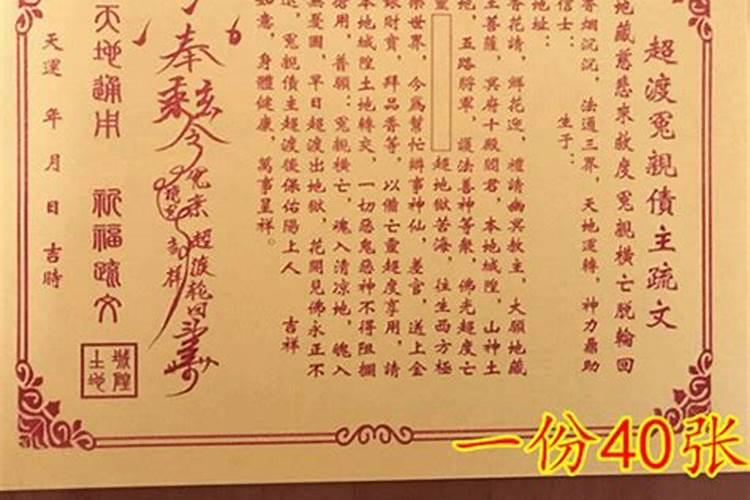 超渡冤親債主疏文
地藏慈悲來救度冤親橫亡脫輪回
香烟沉沉，法通三界，天地運轉，神力鼎助
信士： 生于：
地址：
香花請，鮮花迎，禮請幽冥教主，大願地藏
王菩薩，冥府十殿閻君，本地城隍，山神土
地，五路將軍，護法善神等衆，佛光超度亡
靈 超地獄苦海，往生西方極
樂世界，今爲幫忙辦事神仙，差官，送上金
銀財寶，拜品香等，以備亡靈超度享用，請
本地城隍土地轉交，一切惡鬼惡神不得阻攔
搶用，普願：冤親橫亡，魂入清凉地，魄入
無憂園，早日超渡出地獄，花開見佛永正不
退，冤親債主超渡後保佑陽上人 吉祥
如意，身體健康，萬事呈祥。
奉
令
超渡
天地通用 祈福疏文
城隍土地
天運 年 月 日 吉時
一份40张